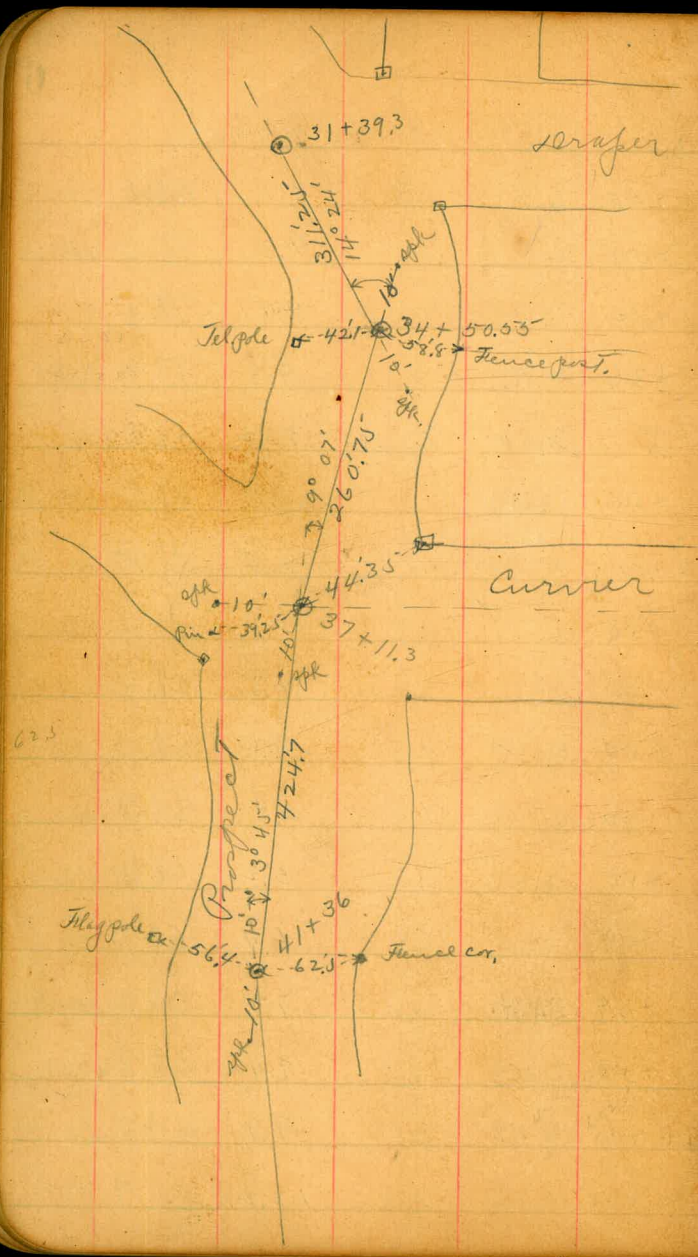 31+39.3
Draper
311.25'
14° 24'
spk
10'
Tel pole
42.1
34+50.55
58.8
Fence post.
10'
spk
9° 07'
260.75
44.35
Currier
spk
10'
Pin
39.25
37+11.3
10'
spk
62.5
424.7
Prospect
3° 45'
10'
41+36
Flag pole
56.4
62.5
Fence cor.
10'
spk